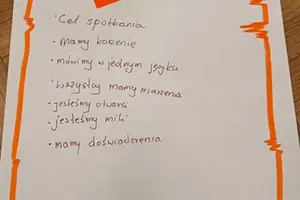 · Cel spotkania
- Mamy borzenie
· mówimy w jednym języku
· Wszyscy mamy marzenia
· jesteśmy otwarci
· jesteśmy mili
· mamy doświadczenia